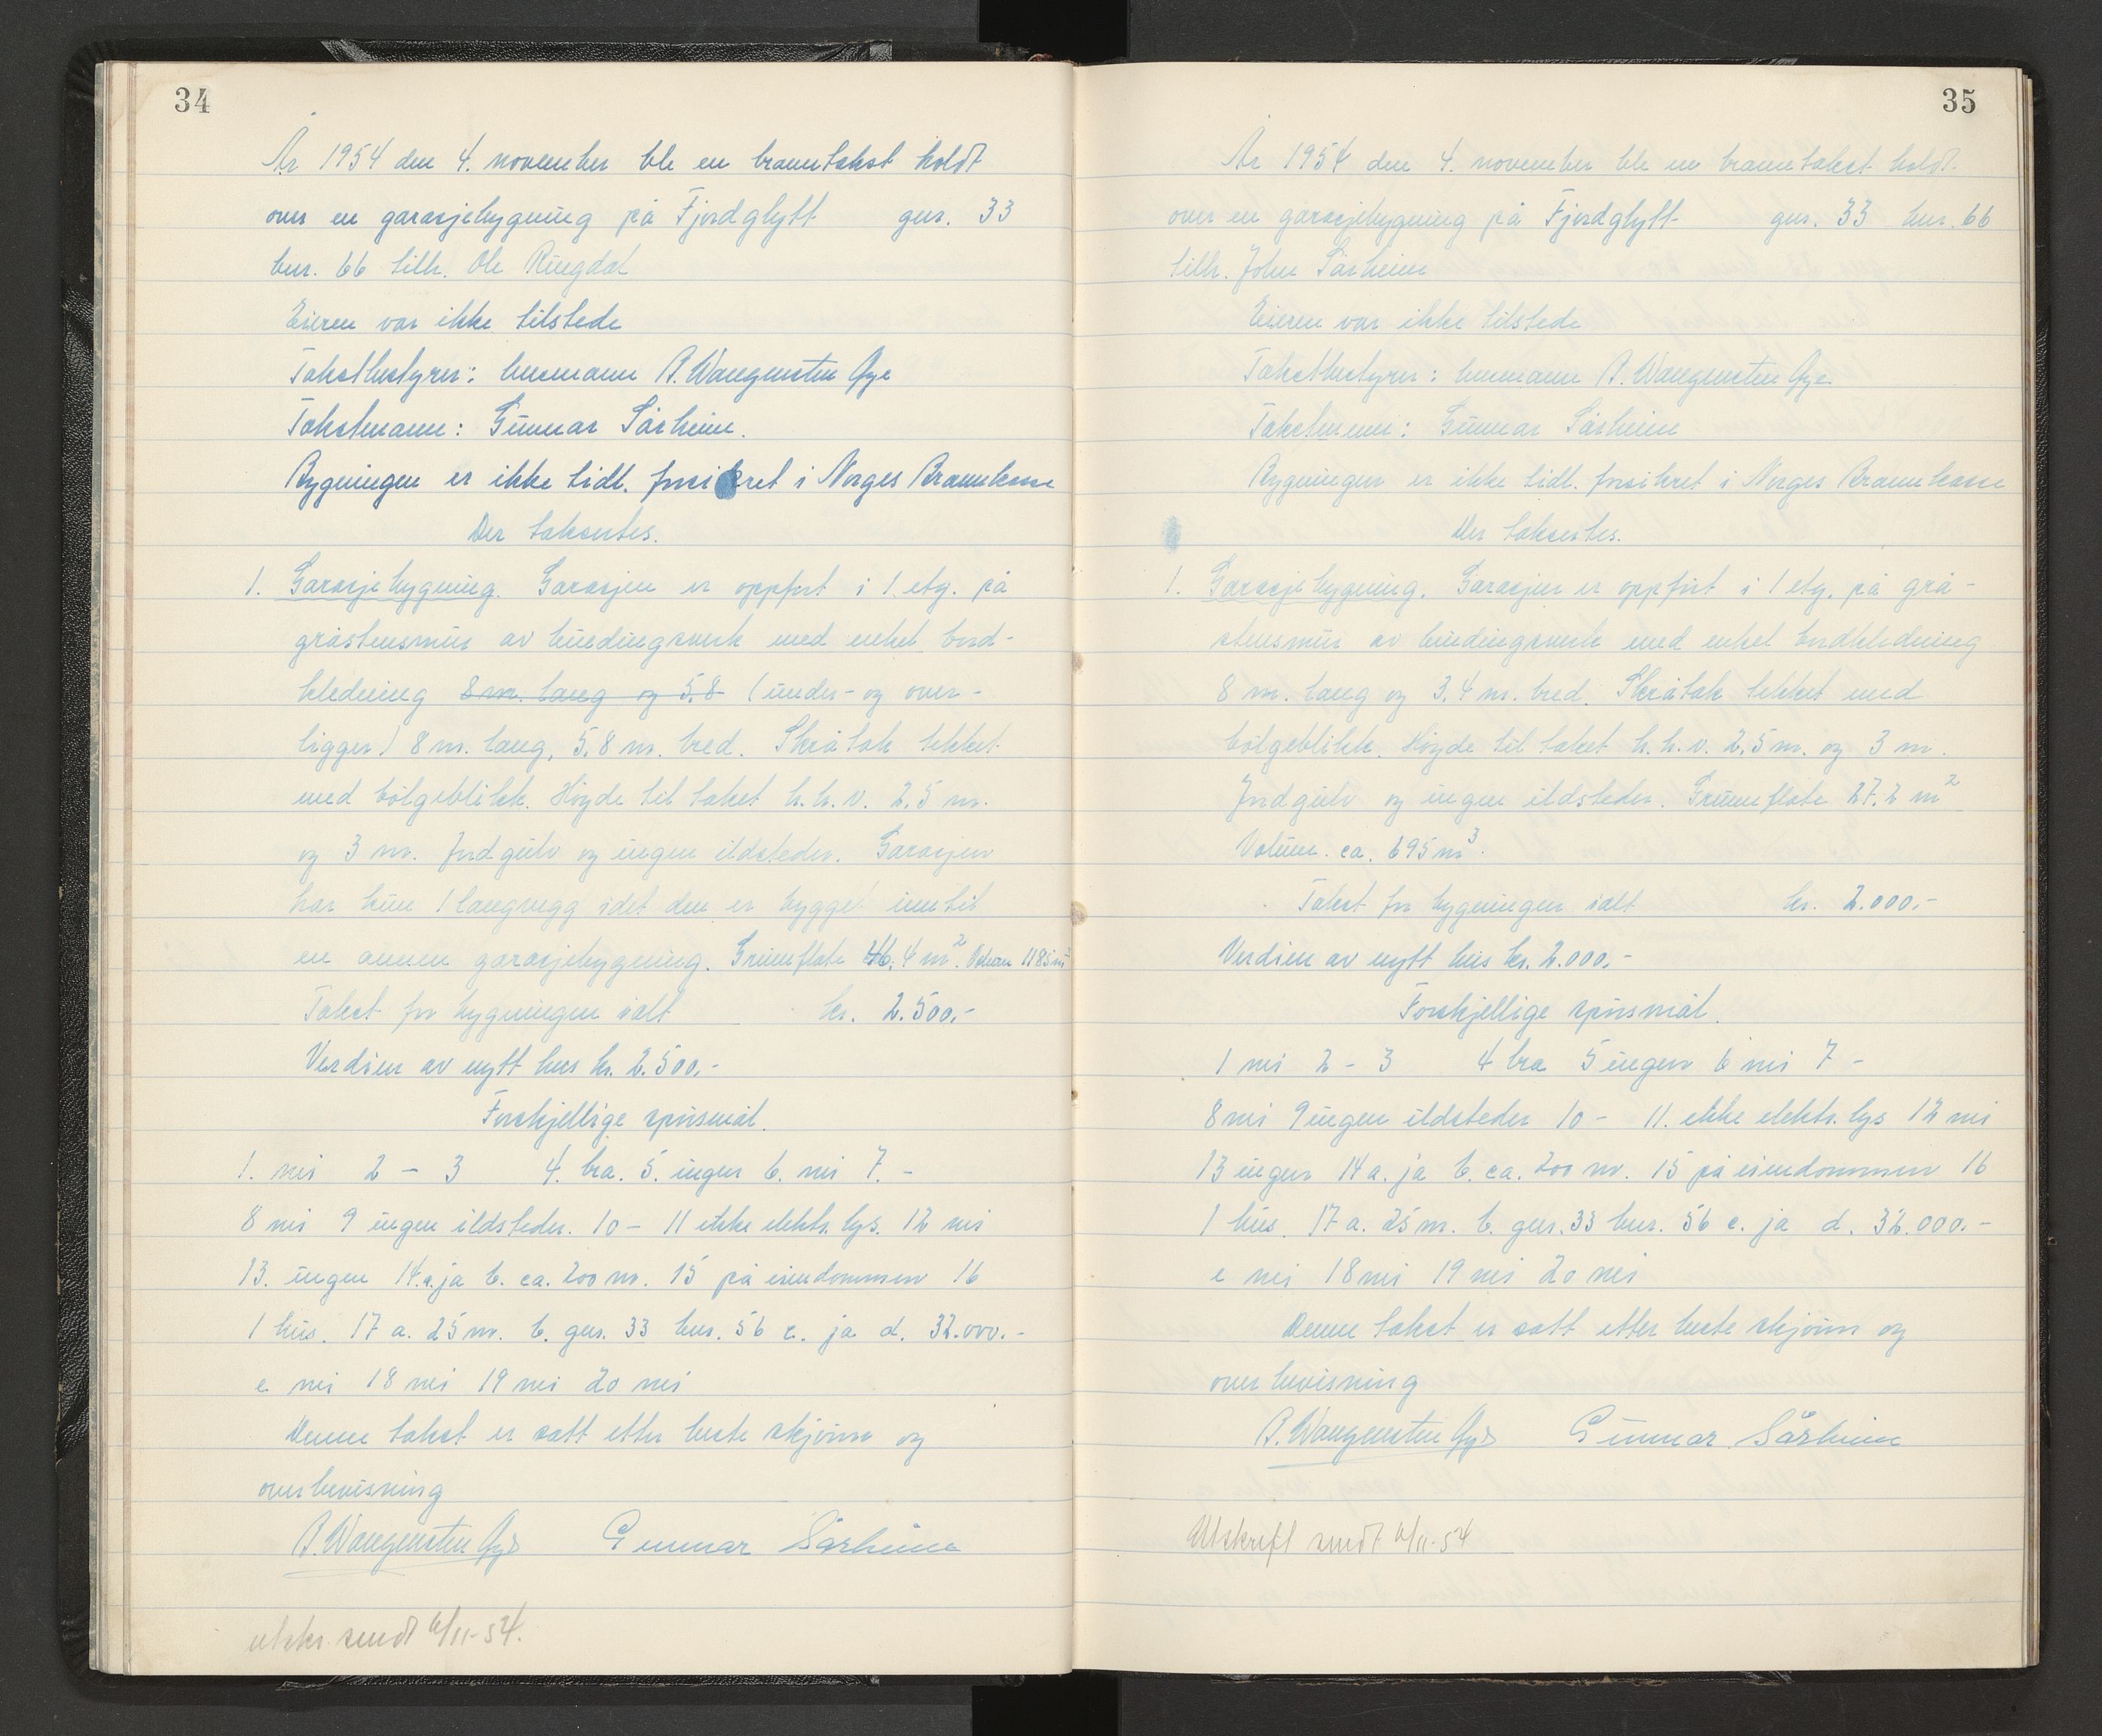 34
År 1954 den 4. november ble en branntakst holdt
over en garasjebygning på Fjordglytt gnr. 33
bnr. 66 tilh. Ole Ringdal
Eieren var ikke tilstede
Takstbestyrer: lensmann B. Wangensten Øye
Takstmann: Gunnar Sårheim.
Bygningen er ikke tidl. forsikret i Norges Brannkasse
Der takseres.
1. Garasjebygning. Garasjen er oppført i 1 etg. på
gråstensmur av bindingsverk med enkel bord-
kledning 8 m. lang og 5,8 (under- og over-
ligger) 8 m. lang, 5,8 m. bred. Skråtak tekket
med bølgeblikk. Høyde til taket h.h.v. 2,5 m.
og 3 m. Jordgulv og ingen ildsteder. Garasjen
har kun 1 langvegg idet den er bygget inntil
en annen garasjebygning. Grunnflate 46,4 m². Volum 118 5 m³
Takst for bygningen ialt kr. 2.500,-
Verdien av nytt hus kr. 2.500,-
Forskjellige spørsmål.
1. nei 2 - 3 4. bra. 5. ingen 6. nei 7. -
8 nei 9 ingen ildsteder. 10 - 11 ikke elektr. lys. 12 nei
13. ingen 14.a. ja b. ca. 200 m. 15 på eiendommen 16
1 hus. 17 a. 25 m. b. gnr. 33 bnr. 56 c. ja d. 32.000.-
e nei 18 nei 19 nei 20 nei
Denne takst er satt etter beste skjønn og
overbevisning
B. Wangensten Øye Gunnar Sårheim
utskr. sendt 6/11-54.
35
År 1954 den 4. november ble en branntakst holdt.
over en garasjebygning på Fjordglytt gnr. 33 bnr. 66
tilh. John Sårheim
Eieren var ikke tilstede
Takstbestyrer: lensmann B. Wangensten Øye
Takstmann: Gunnar Sårheim
Bygningen er ikke tidl. forsikret i Norges Brannkasse
Der takseres.
1. Garasjebygning. Garasjen er oppført i 1 etg. på grå-
stensmur av bindingsverk med enkel bordkledning
8 m. lang og 3,4 m. bred. Skråtak tekket med
bølgeblikk. Høyde til taket h.h.v. 2,5 m. og 3 m.
Jordgulv og ingen ildsteder. Grunnflate 27,2 m²
Volum. ca. 695 m³.
Takst for bygningen ialt kr. 2.000,-
Verdien av nytt hus kr. 2.000,-
Forskjellige spørsmål.
1 nei 2 - 3 4 bra 5 ingen 6 nei 7 -
8 nei 9 ingen ildsteder 10 - 11. ikke elektr. lys 12 nei
13 ingen 14 a. ja b. ca. 200 m. 15 på eiendommen 16
1 hus. 17 a. 25 m. b. gnr. 33 bnr. 56 c. ja d. 32.000.-
e nei 18 nei 19 nei 20 nei
Denne takst er satt etter beste skjønn og
overbevisning
B. Wangensten Øye Gunnar Sårheim
Utskrift sendt 6/11-54